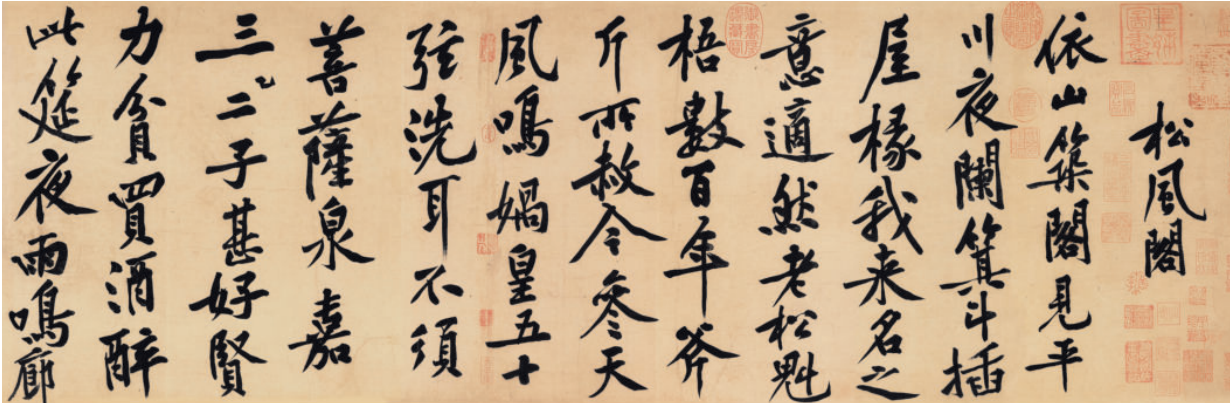 松風閣
依山築閣見平
川夜闌箕斗插
屋椽我来名之
意適然老松魁
梧數百年斧
斤所赦今參天
風鳴媧皇五十
弦洗耳不須
菩薩泉嘉
三二子甚好賢
力貧買酒醉
此筵夜雨鳴廊